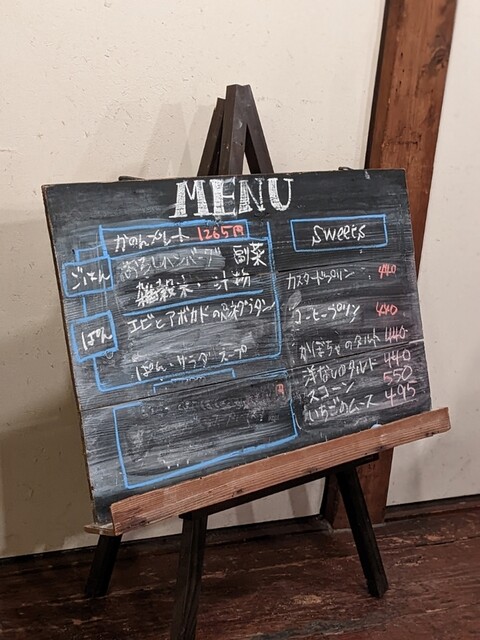 MENU
かのんプレート 1265円
ごはん
おろしハンバーグ 副菜
雑穀米・汁物
ぱん
エビとアボカドの
ぱん・サラダ スープ
sweets
カスタードプリン 440
コーヒープリン 440
かぼちゃのタルト 440
洋なしのタルト 440
スコーン 550
いちごのムース 495